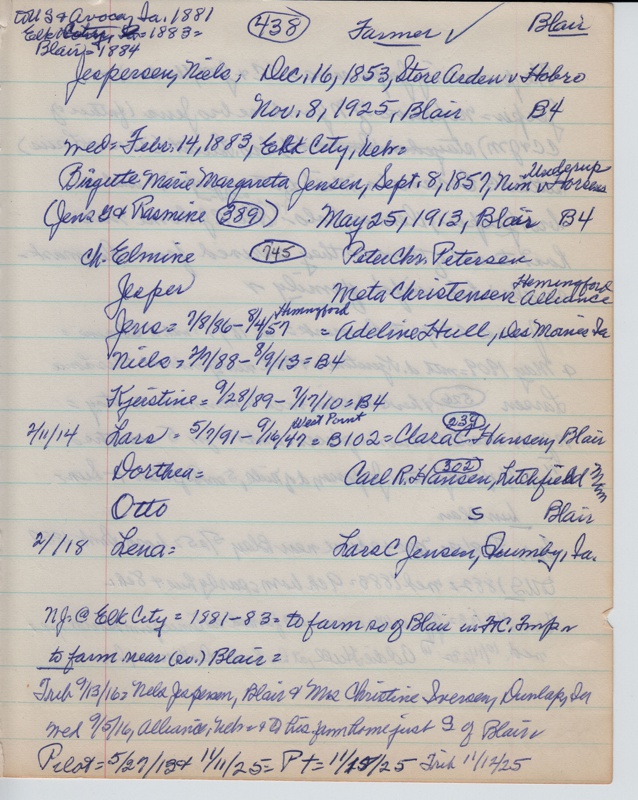 to US & Avoca, Ia. 1881
Elk City = 1883 =
Blair = 1884
438
Farmer ✓
Blair
Jespersen, Niels, Dec. 16, 1853, Store Arden v Hobro
Nov. 8, 1925, Blair B4
Med = Febr. 14, 1883, Elk City, Neb =
Birgitte Marie Margareta Jensen, Sept. 8, 1857, Nim v Horsens
(Jens & Rasmine 389) = May 25, 1913, Blair B4
Ch. Elmine 745 Peter Chr. Petersen
Jesper Meta Christensen Hemingford Alliance
Jens = 7/8/86 - 8/4/57 Hemingford = Adeline Hull, Des Moines Ia
Niels = 7/7/88 - 8/9/13 = B4
Kjerstine = 9/28/89 - 7/17/10 = B4
2/11/14 Lars = 5/7/91 - 9/16/47 West Point = B102 = Clara C. Hansen, 239 Blair
Dorthea = Carl R. Hansen, 302 Litchfield
Otto S Blair
2/1/18 Lena = Lars C Jensen, Quimby, Ia.
NJ @ Elk City = 1881-83 = to farm so of Blair in
to farm near (so.) Blair =
Trib 9/13/16 = Nels Jespersen, Blair & Mrs Christine Iversen, Dunlap, Ia
med 9/5/16, Alliance, Neb = & to his farm home just S of Blair
Pilot = 5/27/13 & 11/11/25 = Pt = 11/25 Trib 11/12/25